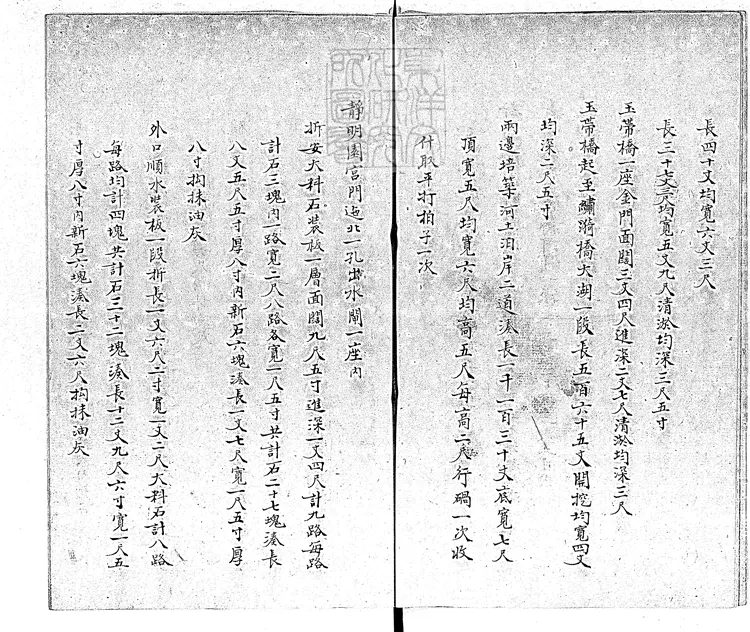 長四十丈均寬六丈三尺
長三十七丈三尺均寬五丈九尺清淤均深三尺五寸
玉帶橋一座金門面闊三丈四尺進深二丈七尺清淤均深三尺
玉帶橋起至繡漪橋大湖一段長五百六十五丈開挖均寬四丈
均深二尺五寸
兩邊培築河土泊岸二道湊長一千一百三十丈底寬七尺
頂寬五尺均寬六尺均高五尺每高二尺行硪一次收
什取平打拍子一次
靜明園宮門迤北一孔出水閘一座內
拆安大料石裝板一層面闊九尺五寸進深一丈四尺計九路每路
計石三塊內一路寬二尺八路各寬一尺五寸共計石二十七塊湊長
八丈五尺五寸厚八寸內新石六塊湊長一丈七尺寬一尺五寸厚
八寸抅抹油灰
外口順水裝板一段折長一丈六尺二寸寬一丈二尺大料石計八路
每路均計四塊共計石三十二塊湊長十二丈九尺六寸寬一尺五
寸厚八寸內新石六塊湊長二丈六尺抅抹油灰